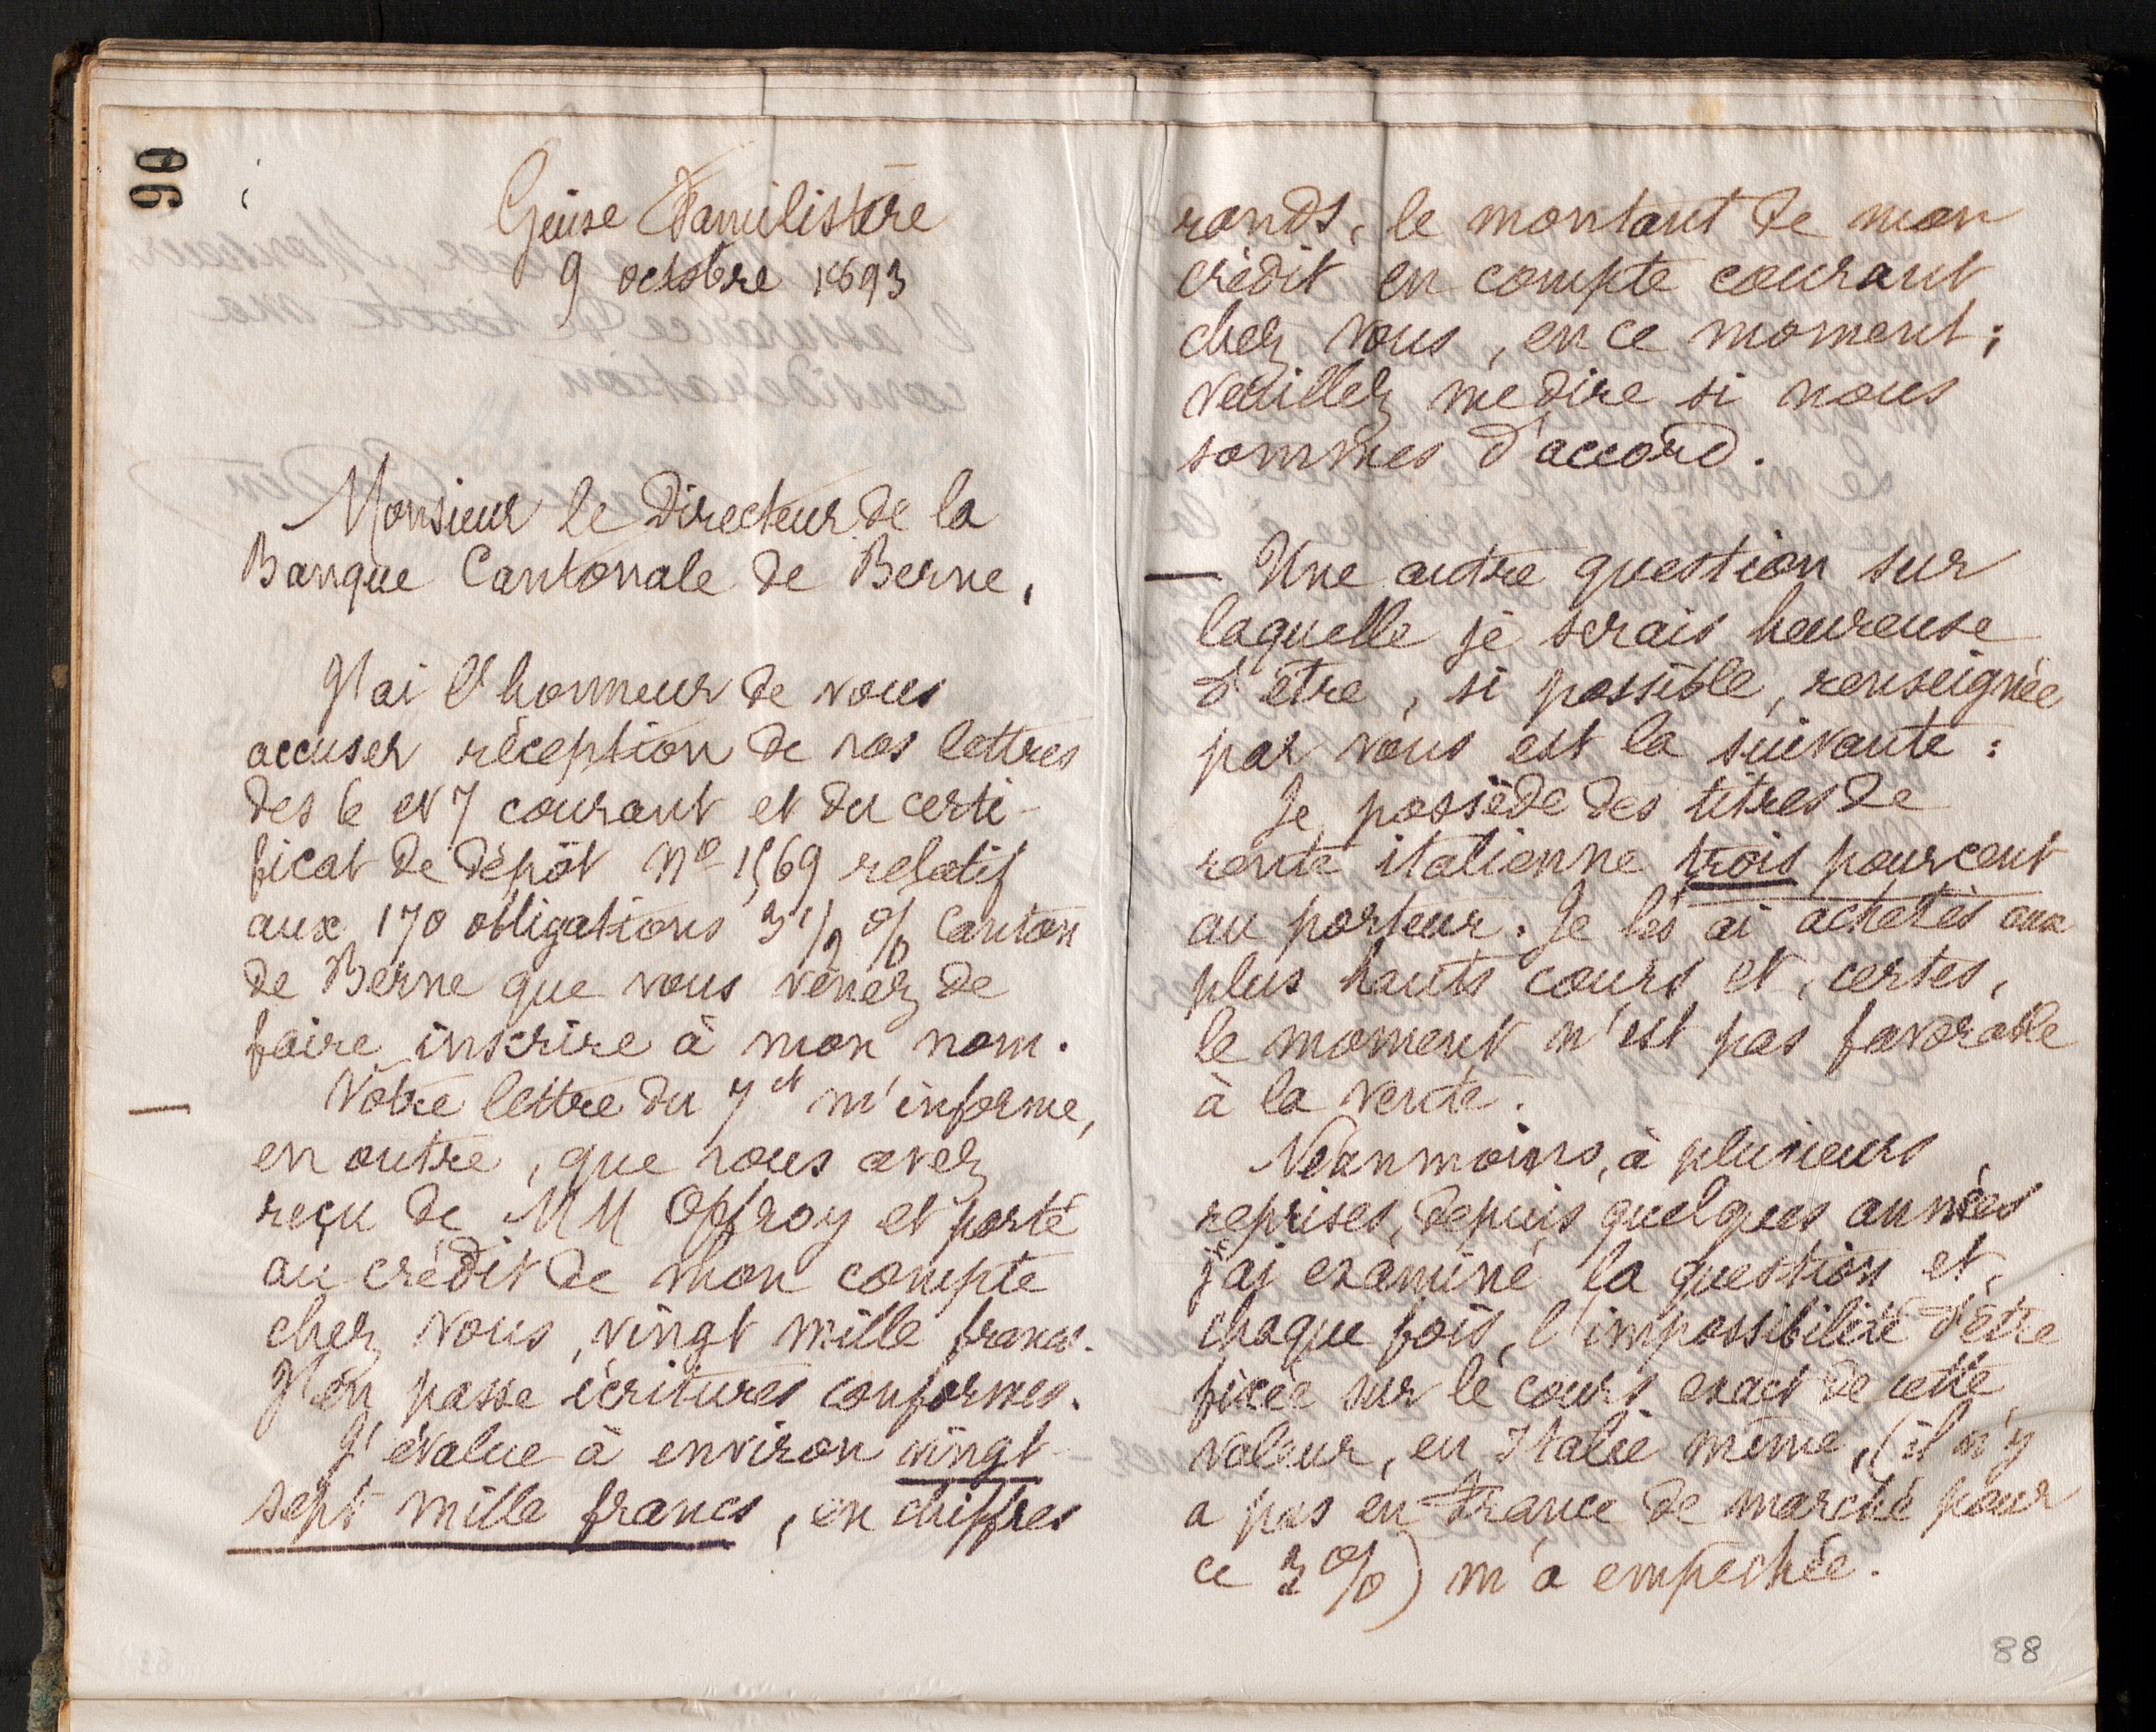 90
Guise Familistère
9 octobre 1893
Monsieur le Directeur de la
Banque Cantonale de Berne,
J'ai l'honneur de vous
accuser réception de vos lettres
des 6 et 7 courant et du certi-
ficat de dépôt nº 1569 relatif
aux 170 obligations 3 1/2 % Canton
de Berne que vous venez de
faire inscrire à mon nom.
— Votre lettre du 7 ct m'informe,
en outre, que vous avez
reçu de MM Offroy et porté
au crédit de mon compte
chez vous, vingt mille francs.
J'en passe écritures conformes.
J'évalue à environ vingt-
sept mille francs, en chiffres
ronds, le montant de mon
crédit en compte courant
chez vous, en ce moment;
veuillez me dire si nous
sommes d'accord.
— Une autre question sur
laquelle je serais heureuse
d'être, si possible, renseignée
par vous est la suivante:
Je possède des titres de
rente italienne trois pour cent
au porteur. Je les ai achetés aux
plus hauts cours et, certes,
le moment n'est pas favorable
à la vente.
Néanmoins, à plusieurs
reprises, depuis quelques années
j'ai examiné la question et,
chaque fois, l'impossibilité d'être
fixée sur le cours exact de cette
valeur, en Italie même, (il n'y
a pas en France de marché pour
ce 3 %) m'a empêchée.
88